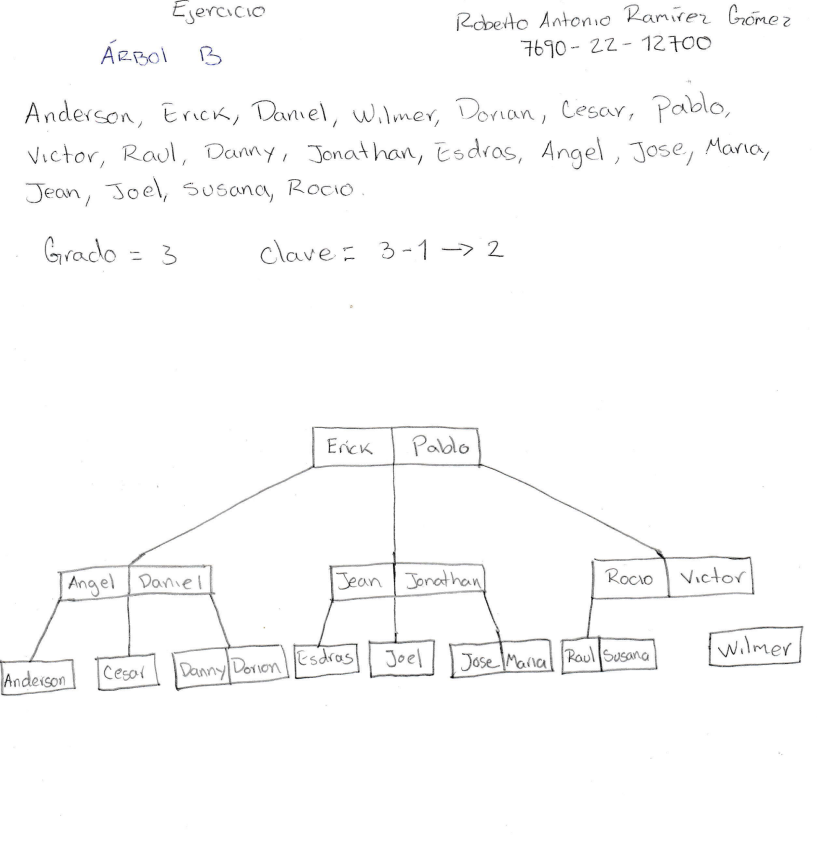 Ejercicio
Roberto Antonio Ramírez Gómez
7690-22-12700
ÁRBOl B
Anderson, Erick, Daniel, Wilmer, Dorian, Cesar, Pablo,
Victor, Raul, Danny, Jonathan, Esdras, Angel, Jose, Maria,
Jean, Joel, Susana, Rocio.
Grado = 3 Clave = 3-1 → 2
Erick Pablo
Angel Daniel Jean Jonathan Rocio Victor
Anderson Cesar Danny Dorian Esdras Joel Jose Maria Raul Susana Wilmer